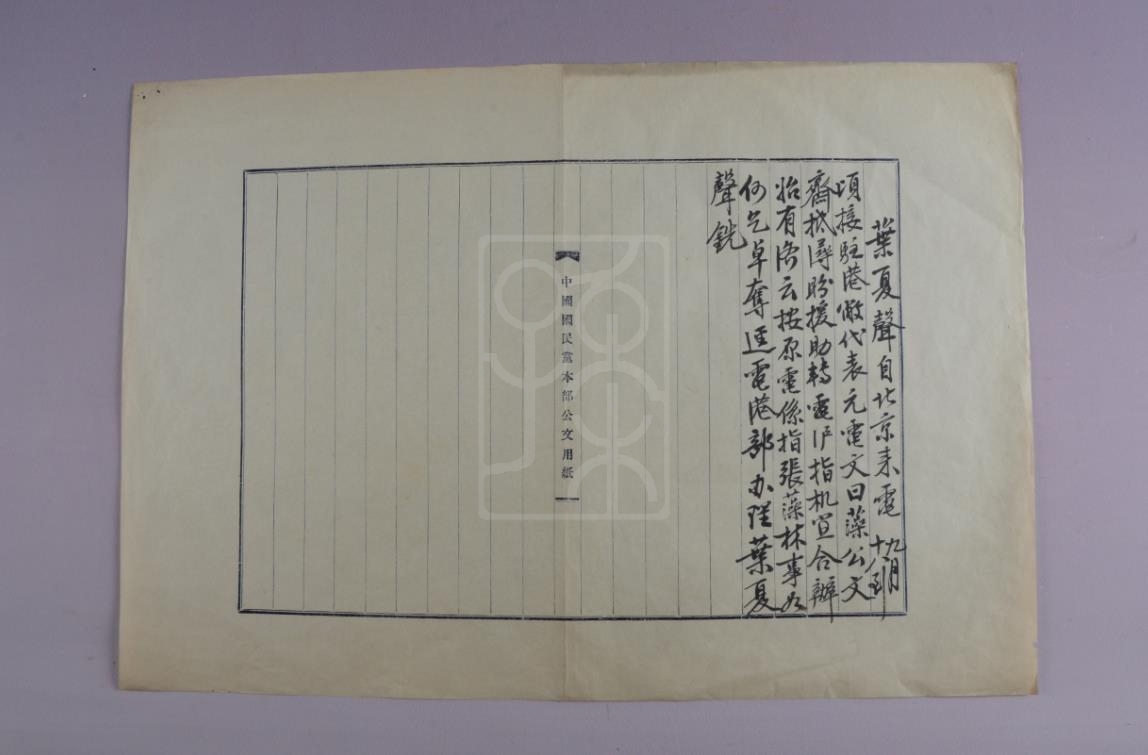 葉夏聲自北京來電 九月十八到
頃接駐港敝代表元電文曰藻公文
齋抵潯盼援助轉電沪指机宜合辦
怡有洛云按原電係指張藻林事如
何乞卓奪逕電港部办理葉夏
聲銑
中國國民黨本部公文用紙